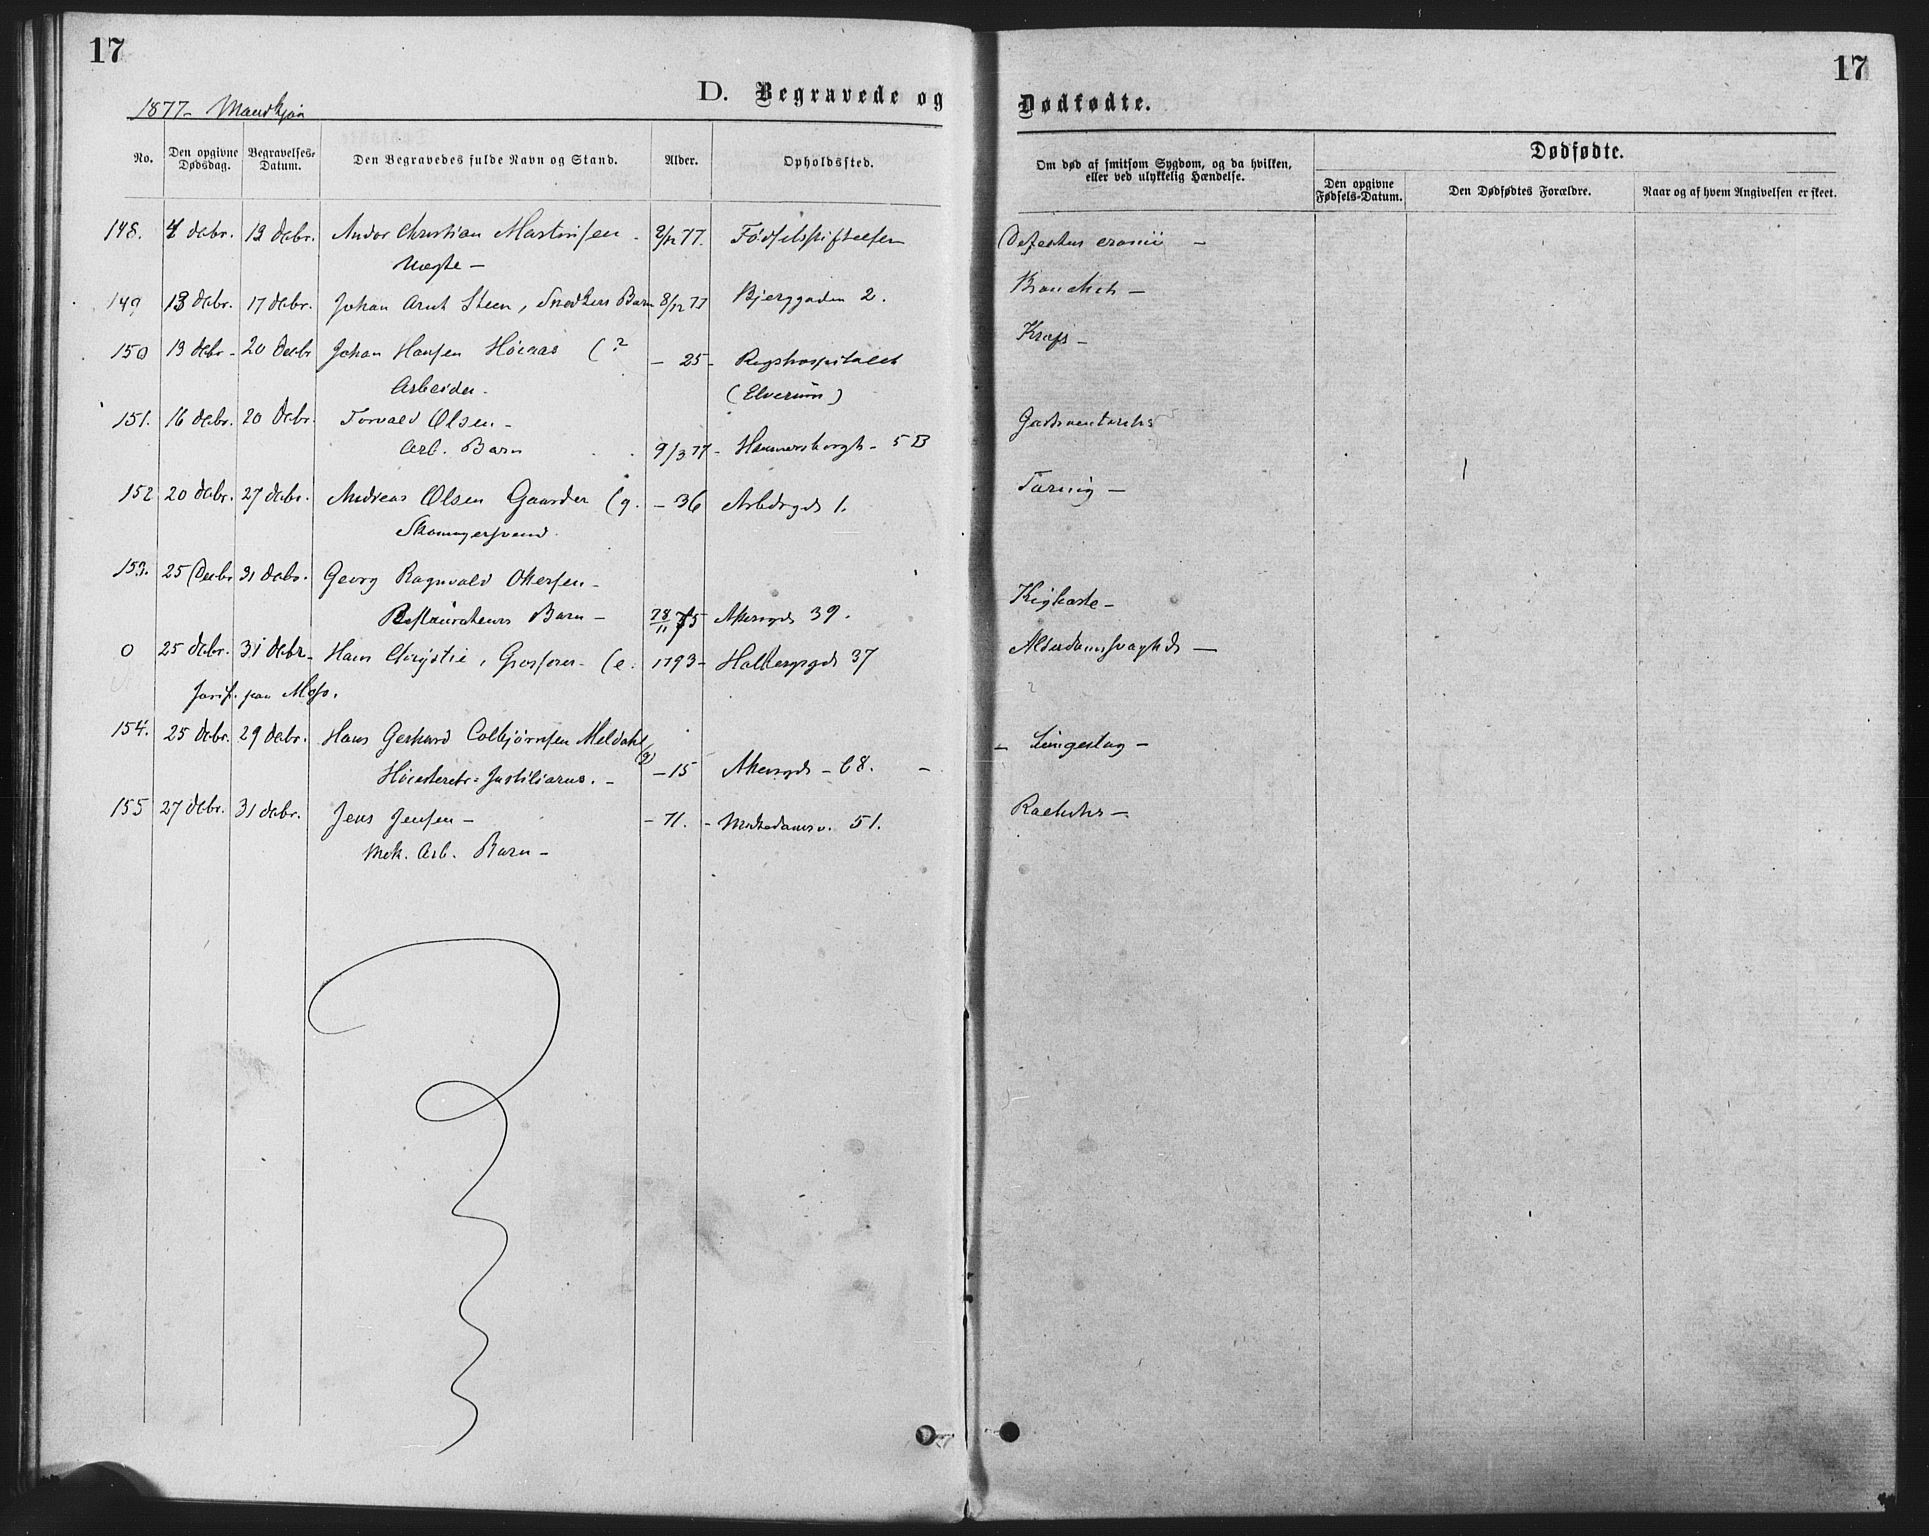 17
17
1877 - Mandkjøn
D. Begravede og Dødfødte.
No.
Den opgivne Dødsdag.
Begravelses-Datum.
Den Begravedes fulde Navn og Stand.
Alder.
Opholdssted.
Om død af smitsom Sygdom, og da hvilken,
eller ved ulykkelig Hændelse.
Dødfødte.
Den opgivne Fødsels-Datum.
Den Dødfødtes Forældre.
Naar og af hvem Angivelsen er skeet.
148. 4 Debr. 13 Debr. Andor Christian Martinsen - 2/12 77. Fødselsstiftelsen Defectus cranii -
Uægte -
149 13 Debr. 17 Debr. Johan Arnt Steen, Snedkers Barn 8/12 77 Bjerggaden 2. Bronchit -
150 13 Debr - 20 Decbr Johan Hansen (? - 25 - Rigshospitalet Krafs -
Arbeider. (Elverum)
151. 16 Debr. 20 Debr. Torvald Olsen -
Arb. Barn 9/3 77 - Hammersborgt - 5 B
152 20 Debr. 27 Debr. Andreas Olsen Gaarder (g. - 36 Arbdrgd 1. Tæring -
Skomagersvend.
153. 25 Decbr 31 Debr. Georg Ragnvald Ottersen -
Restaurateurs Barn - 28/11 75 Akersgd 39. Kighoste -
0 25 Debr. 31 Debr. Hans Chrystie, Grosserer - (e. 1793 - Holbergsgd 37 Alderdomssvaghd -
Jordf. paa Moss.
154. 25 Debr. 29 Debr. Hans Gerhard Colbjørnsen Meldahl (g)
Høiesterets-Justitiarius. - - 15 Akersgd - 68. - - Lungeslag -
155 27 Debr. 31 Debr. Jens Jensen - - 71. - 51. Rachitis -
Mek. Arb. Barn -